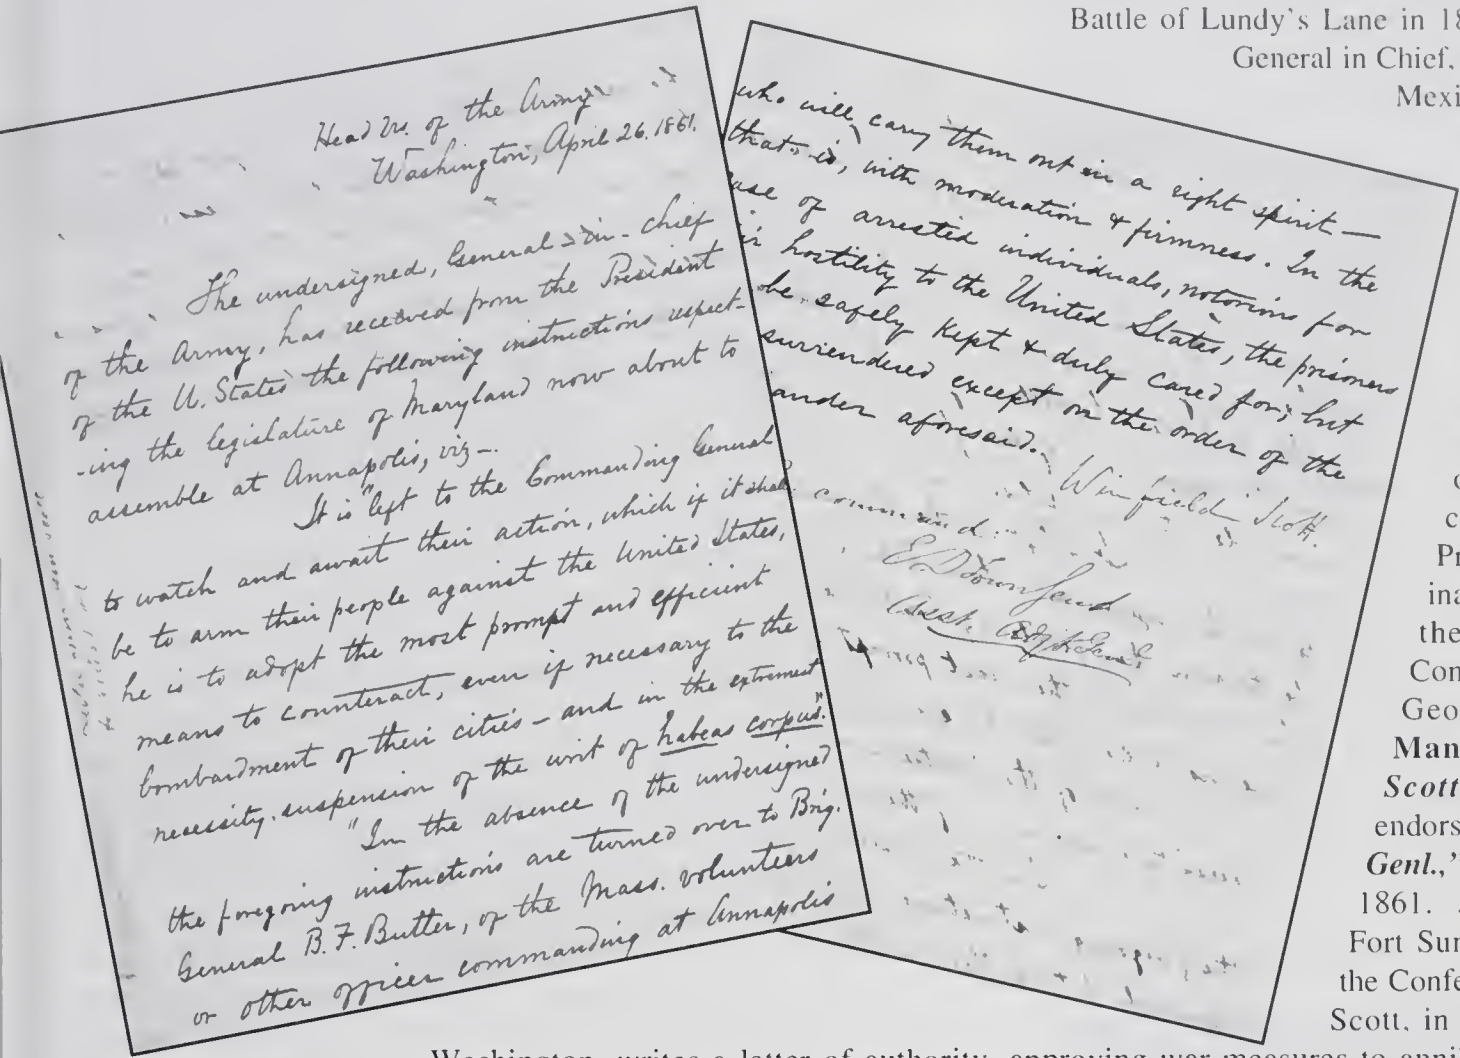 Battle of Lundy's Lane in 18
General in Chief,
Mexi
Head Qrs. of the Army
Washington, April 26. 1861.
The undersigned, General-in-chief
of the Army, has received from the President
of the U. States the following instructions respect-
-ing the legislature of Maryland now about to
assemble at Annapolis, viz-.
It is "left to the Commanding General
to watch and await their action, which if it shall
be to arm their people against the United States,
he is to adopt the most prompt and efficient
means to counteract, even if necessary to the
bombardment of their cities - and in the extremest
necessity, suspension of the writ of habeas corpus."
"In the absence of the undersigned
the foregoing instructions are turned over to Brig.
General B. F. Butler, of the Mass. volunteers
or other officer commanding at Annapolis
who will carry them out in a right spirit —
that is, with moderation & firmness. In the
case of arrested individuals, notorious for
ir hostility to the United States, the prisoners
be safely kept & duly cared for; but
surrendered except on the order of the
ander aforesaid.
Winfield Scott.
command:
E. D. Townsend
Asst. Adjt. Genl.
c
Pr
ina
the
Con
Geo
Man
Scott
endors
Genl.,"
1861.
Fort Sum
the Confe
Scott, in
Washington, writes a letter of authority, approving war measures to annih